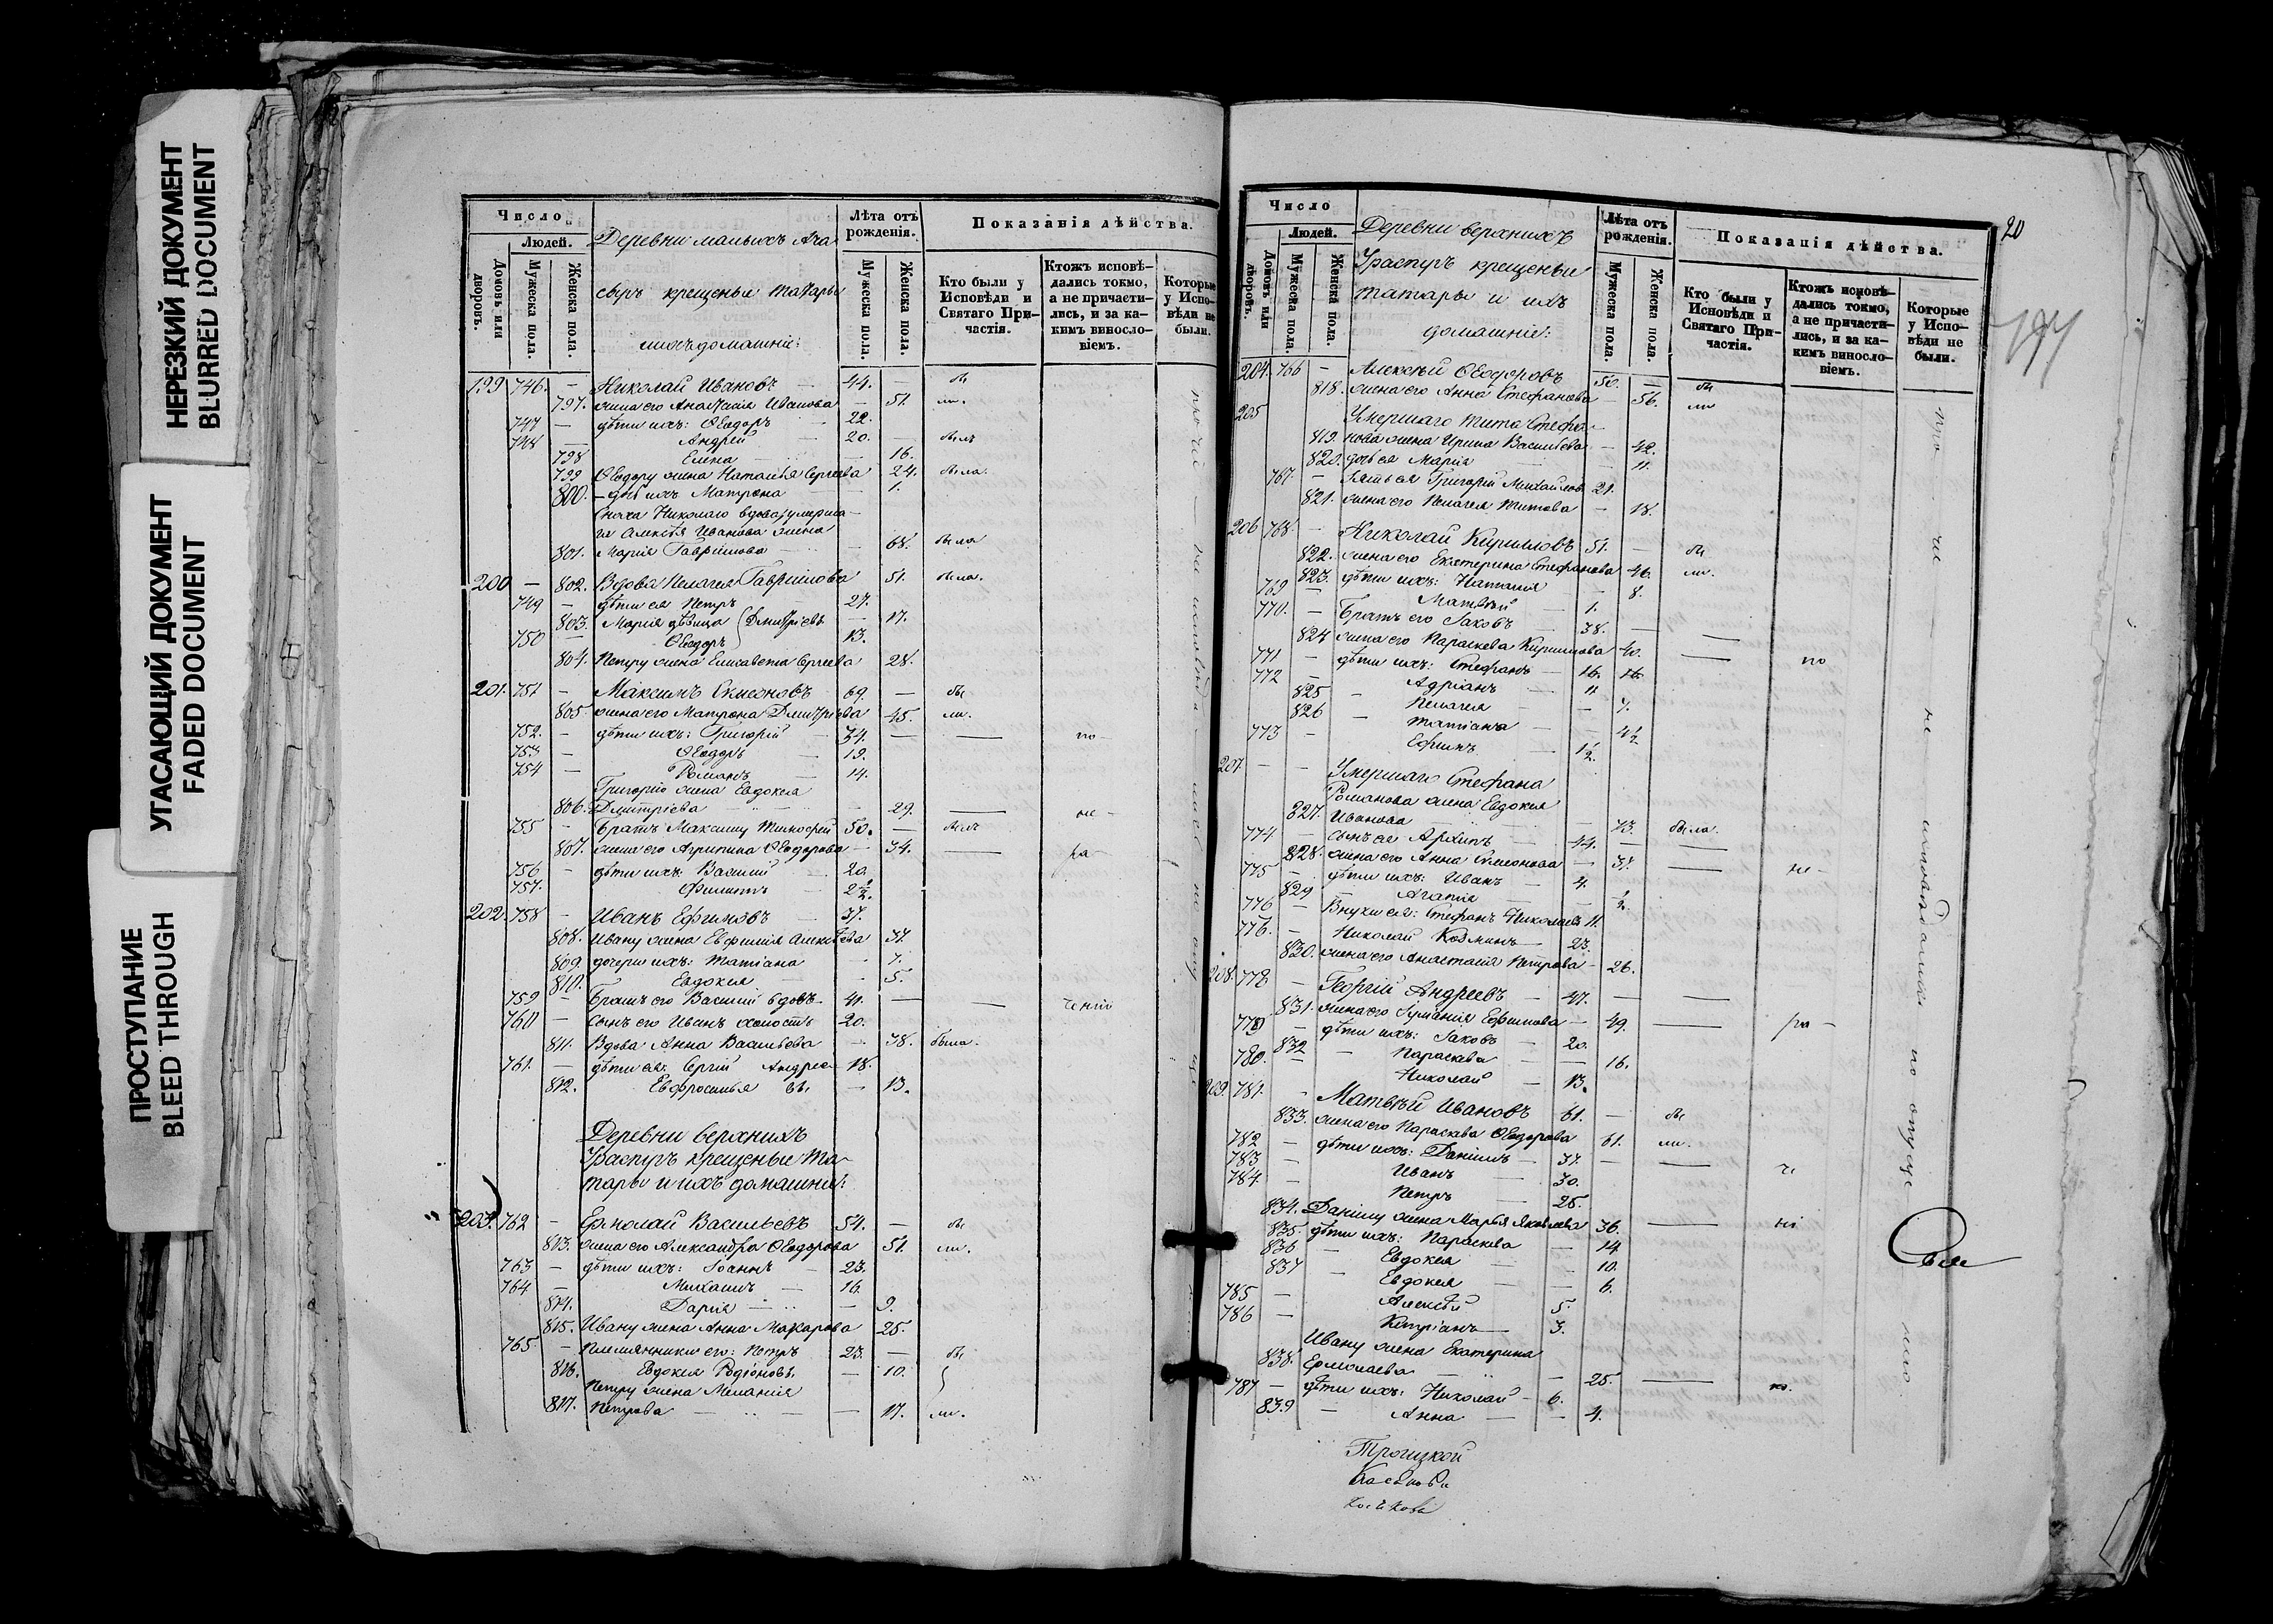 НЕРЕЗКИЙ ДОКУМЕНТ
BLURRED DOCUMENT
УГАСАЮЩИЙ ДОКУМЕНТ
FADED DOCUMENT
ПРОСТУПАНИЕ
BLEED THROUGH
Число
Людей.
Домовъ или дворовъ.
Мужеска пола.
Женска пола.
Деревни малыхъ Ача
сыръ крещеные татары
и ихъ домашніе:
Лѣта отъ рожденія.
Мужеска пола.
Женска пола.
Показанія дѣйства.
Кто были у Исповѣди и Святаго Причастія.
Ктожъ исповѣдались токмо, а не причастились, и за какимъ винословіемъ.
Которые у Исповѣди не были.
199 746. – Николай Ивановъ – 44. – бы
797. жена его Анастасія Иванова – 51. ли.
747 – дѣти ихъ: Ѳеодоръ – 22.
748 – Андрей – 20. – былъ
798 Елена – 16.
799 Ѳеодору жена Наталья Сергеева 24. была.
800. – дочь ихъ Матрона – 1.
сноха Николаго вдова умерша–
го Алексѣя Иванова жена
801. Марія Гаврилова – 68. была
200 – 802. Вдова Пелагея Гаврилова 51. была.
749 – дѣти ея Петръ 27.
803. Марія дѣвица Дмитріевы – 17.
750 – Ѳеодоръ 13.
804. Петру жена Елисавета Сергеева 28.
201. 751 – Максимъ Симеоновъ 69. – бы
805. жена его Матрона Дмитріева 45. ли.
752. – дѣти ихъ: Григорій – 34. – по–
753 – Ѳеодоръ – 19.
754 – Романъ – 14.
Григорію жена Евдокея
806. Дмитріева – 29. – не–
755 – братъ Максиму Тимофей 50. – былъ
807. жена его Агрипина Ѳеодорова – 34. – ра–
756 – дѣти ихъ: Василій – 20.
757. Филиппъ – 2½.
202. 758 – Иванъ Ефимовъ – 37.
808. Ивану жена Евфимія Алексѣева 37.
809 дочери ихъ: Татіана – 7.
810. Евдокея – 5.
759 – Братъ его Василій вдовъ – 41. – ченію
760 – сынъ его Иванъ холостъ 20.
811. Вдова Анна Васильева – 78. была.
761. – дѣти ея: Сергій Андрее– 18.
812. Евфросинья вы. – 13.
Деревни верхнихъ
Ураспуръ крещеные та–
тары и ихъ домашніе:
203. 762 – Ермолай Васильевъ 54. – бы
813. жена его Александра Ѳеодорова 51. ли.
763 – дѣти ихъ: Іоаннъ – 23.
764 – Михаилъ – 16.
814. Дарія – 9.
815. Ивану жена Анна Макарова 25.
765 – племянники его: Петръ 23. – бы
816. Евдокея Родіоновы. – 10.
Петру жена Меланія
817. Петрова – 17. ли.
20
Число
Людей.
Домовъ или дворовъ.
Мужеска пола.
Женска пола.
Деревни верхнихъ
Ураспуръ крещеные
татары и ихъ
домашніе:
Лѣта отъ рожденія.
Мужеска пола.
Женска пола.
Показанія дѣйства.
Кто были у Исповѣди и Святаго Причастія.
Ктожъ исповѣдались токмо, а не причастились, и за какимъ винословіемъ.
Которые у Исповѣди не были.
204. 766 – Алексѣй Ѳеодоровъ 50. – бы
818. жена его Анна Стефанова – 56. ли
205 Умершаго Тита Стефа–
819. нова жена Ирина Васильева – 42.
820. дочь ея Марія – 11.
767. – Зять ея Григорій Михайловъ 21.
821. жена его Пелагея Титова – 18.
206 768. – Николай Кириловъ 51. – бы
822. жена его Екатерина Стефанова 46. ли.
823. дѣти ихъ: Наталія – 8.
769 – Матвѣй – 1.
770. – Братъ его Іаковъ – 38. –
824 жена его Параскева Кирилова 40. – по
771 – дѣти ихъ: Стефанъ – 16.
772 – Адріанъ – 11
825 – Пелагея – 7.
826 – Татіана – 4½
773 – Ефимъ – 1½.
207. – – Умершаго Стефана
Романова жена Евдокея
827. Иванова – 73. была.
774 – сынъ ея Архипъ – 44. –
828. жена его Анна Симеонова – 37. – не–
775 – дѣти ихъ: Иванъ – 4.
829 – Агапія – ½.
776 – Внуки ея: Стефанъ Николаевъ 11.
776. – Николай Козминъ – 23.
830. жена его Анастасія Петрова – 26.
208. 778 – Георгій Андреевъ – 47. –
831. жена его Іуліанія Ефимова – 49. – ра–
779 – дѣти ихъ: Іаковъ – 20.
832 – Параскева – 16.
780. – Николай – 13.
209. 781. – Матвѣй Ивановъ 61. – бы
833. жена его Параскева Ѳеодорова 61. ли.
782 – дѣти ихъ: Даніилъ – 37. – че
783 – Иванъ – 30.
784. – Петръ – 25.
834. Даніилу жена Марья Яковлева 36. – ні
835. дѣти ихъ: Параскева – 14
836 – Евдокея – 10.
837 – Евдокея – 6.
785 – Алексѣй 5.
786 – Купріанъ – 3.
Ивану жена Екатерина
838. Ермолаева – 25. – ю.
787 – дѣти ихъ: Николай – 6.
839 – Анна – 4.
Троицкой